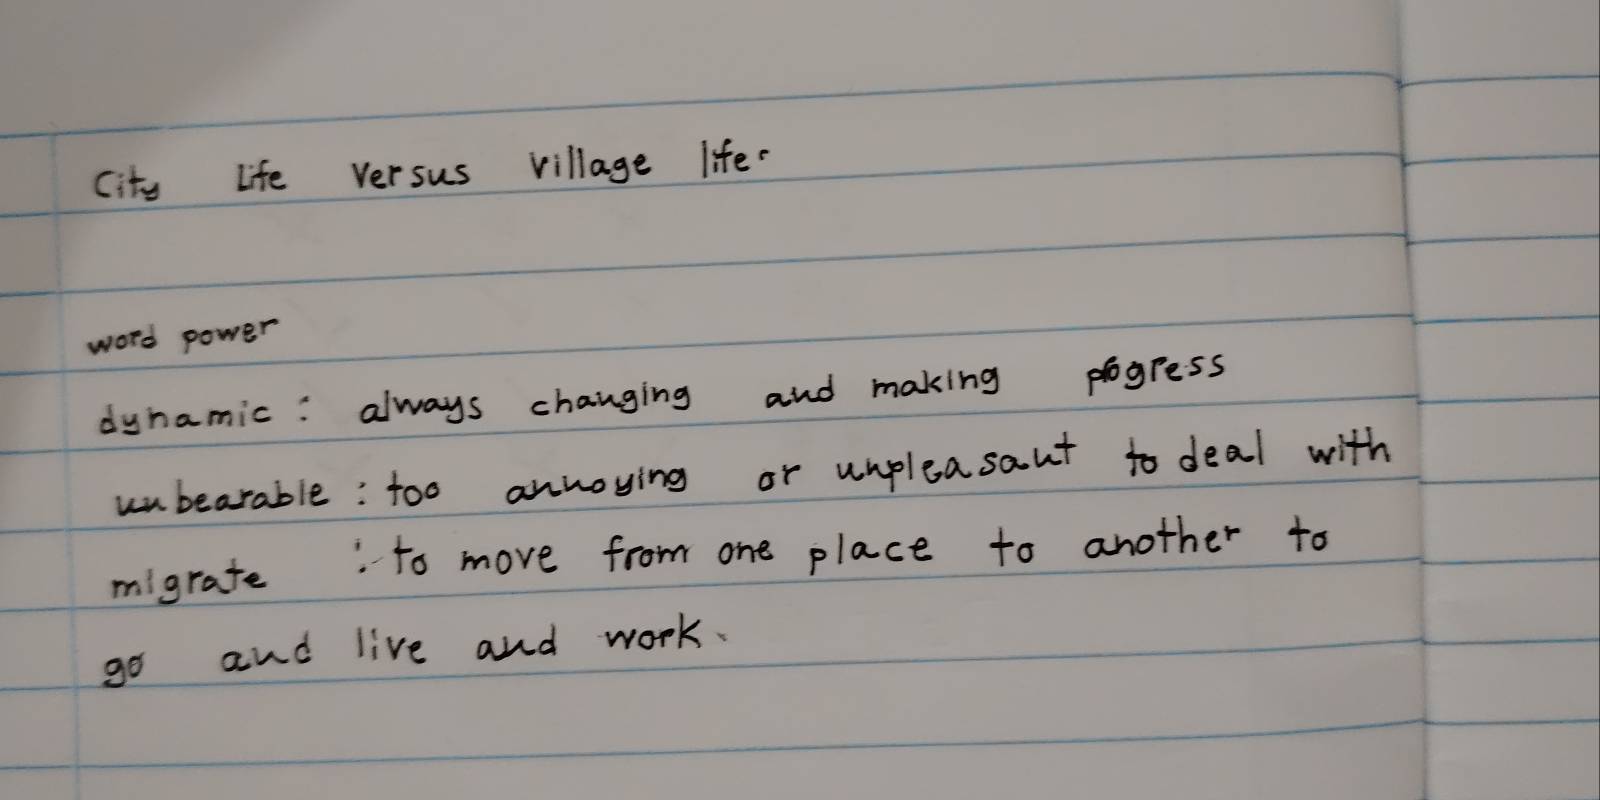 City Life Versus Village life.
word power
dynamic : always changing and making progress
unbearable : too annoying or unpleasant to deal with
migrate : to move from one place to another to
go and live and work.